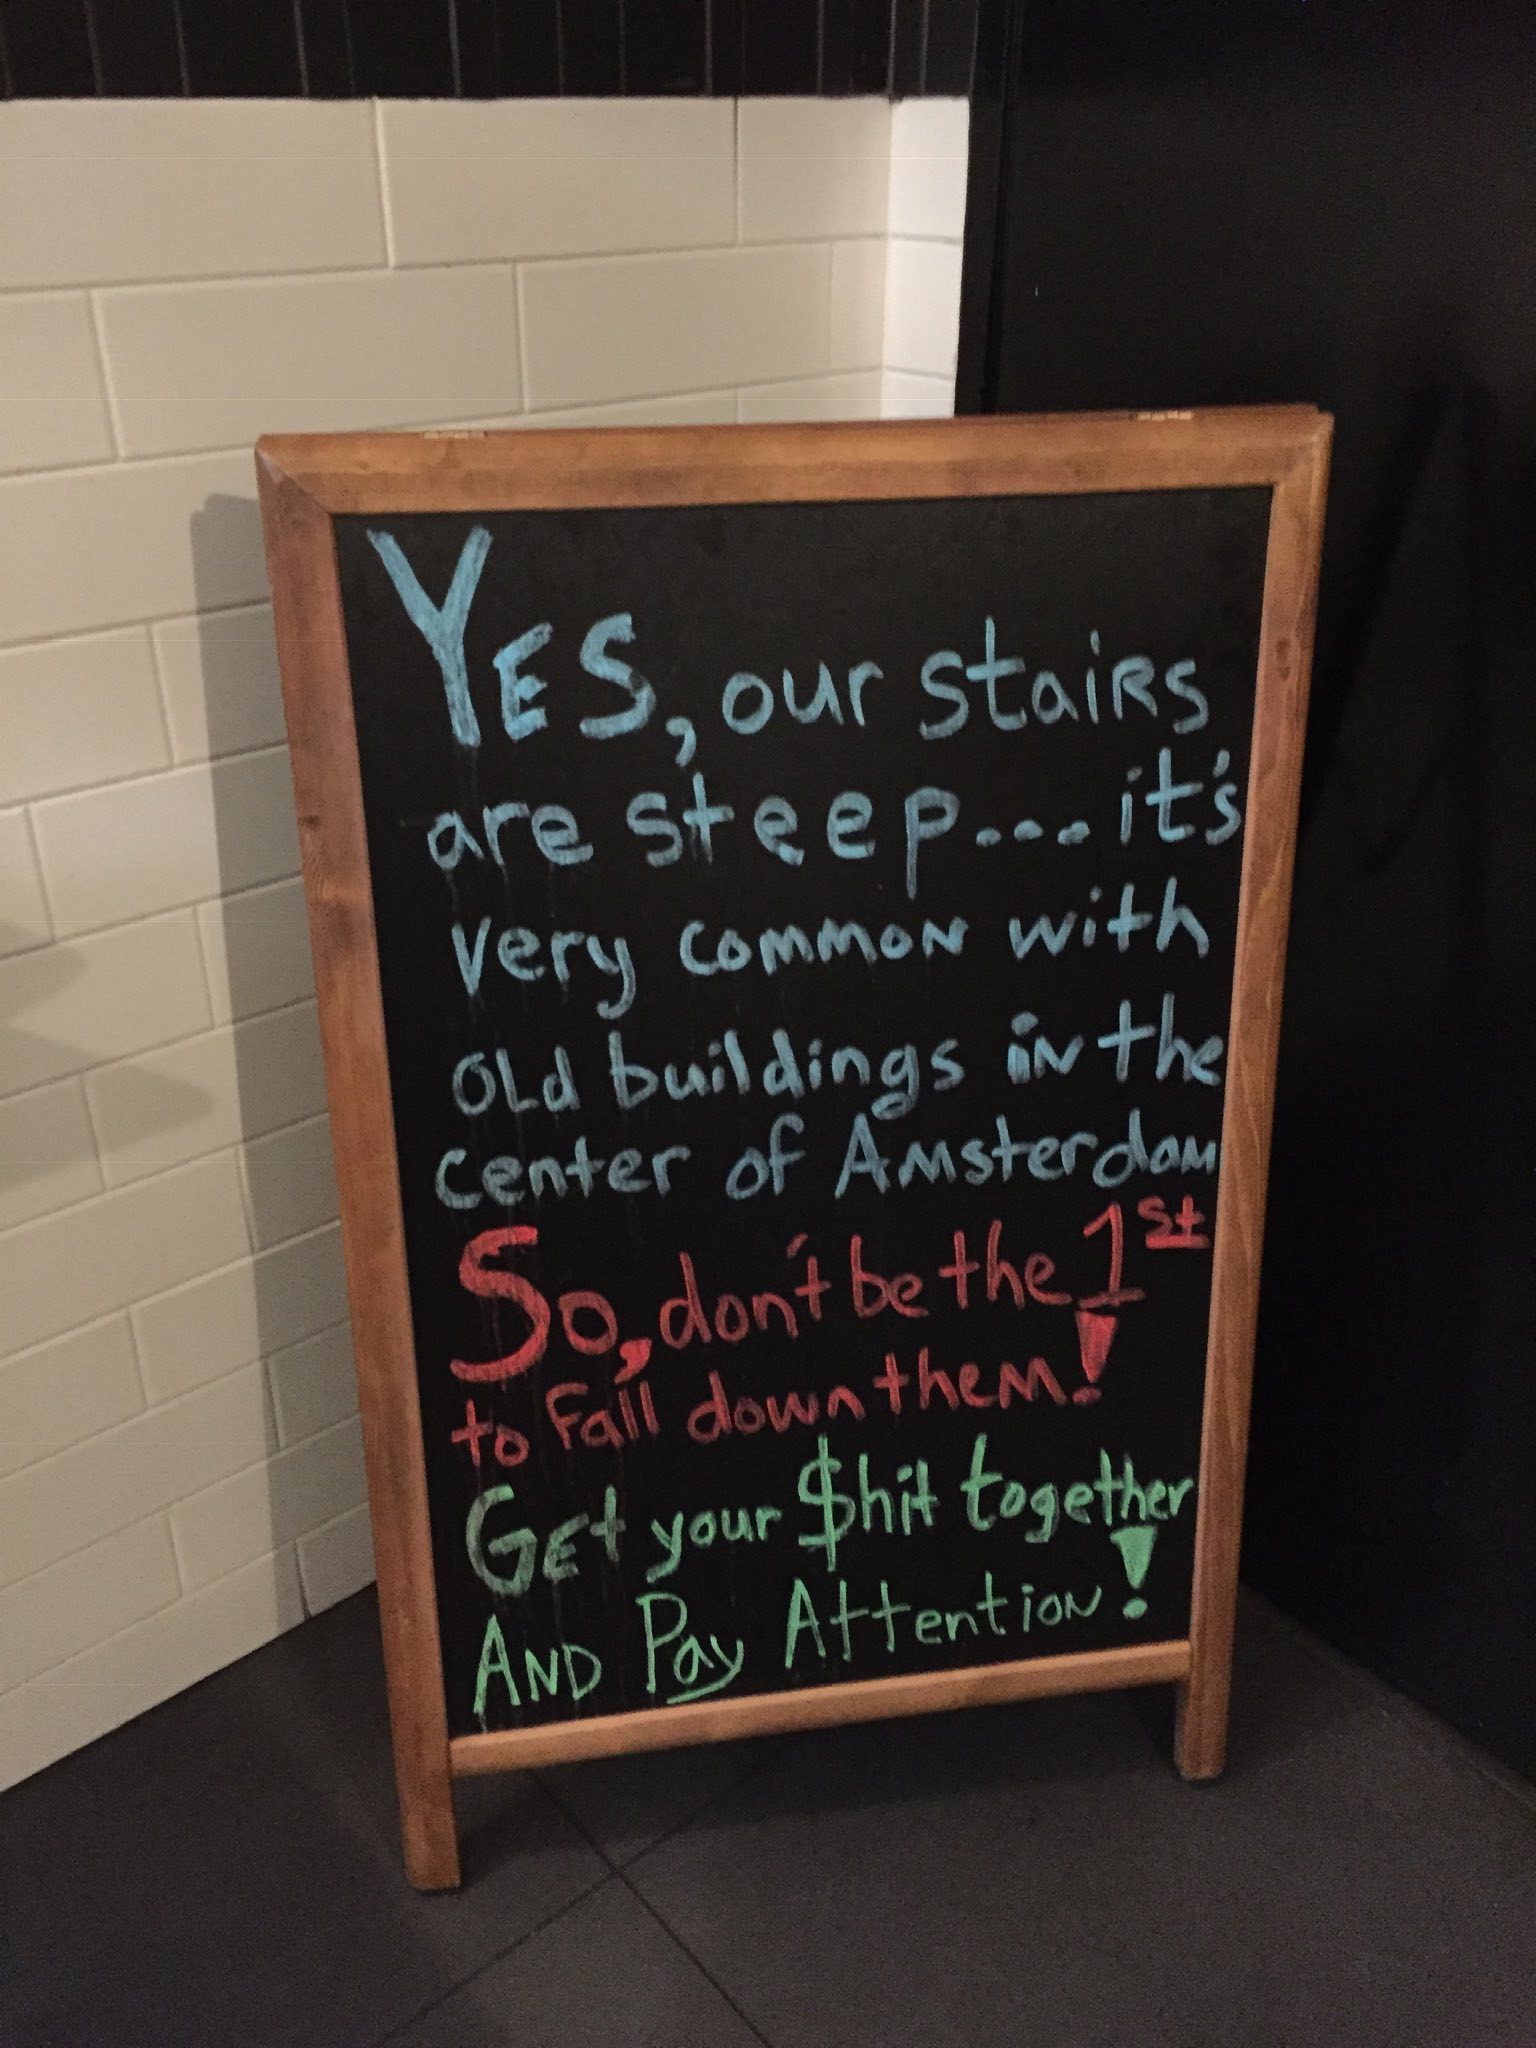 YES, our stairs
are steep... it's
very common with
old buildings in the
center of Amsterdam
So, don't be the 1st
to fall down them!
Get your $hit together
And Pay Attention!